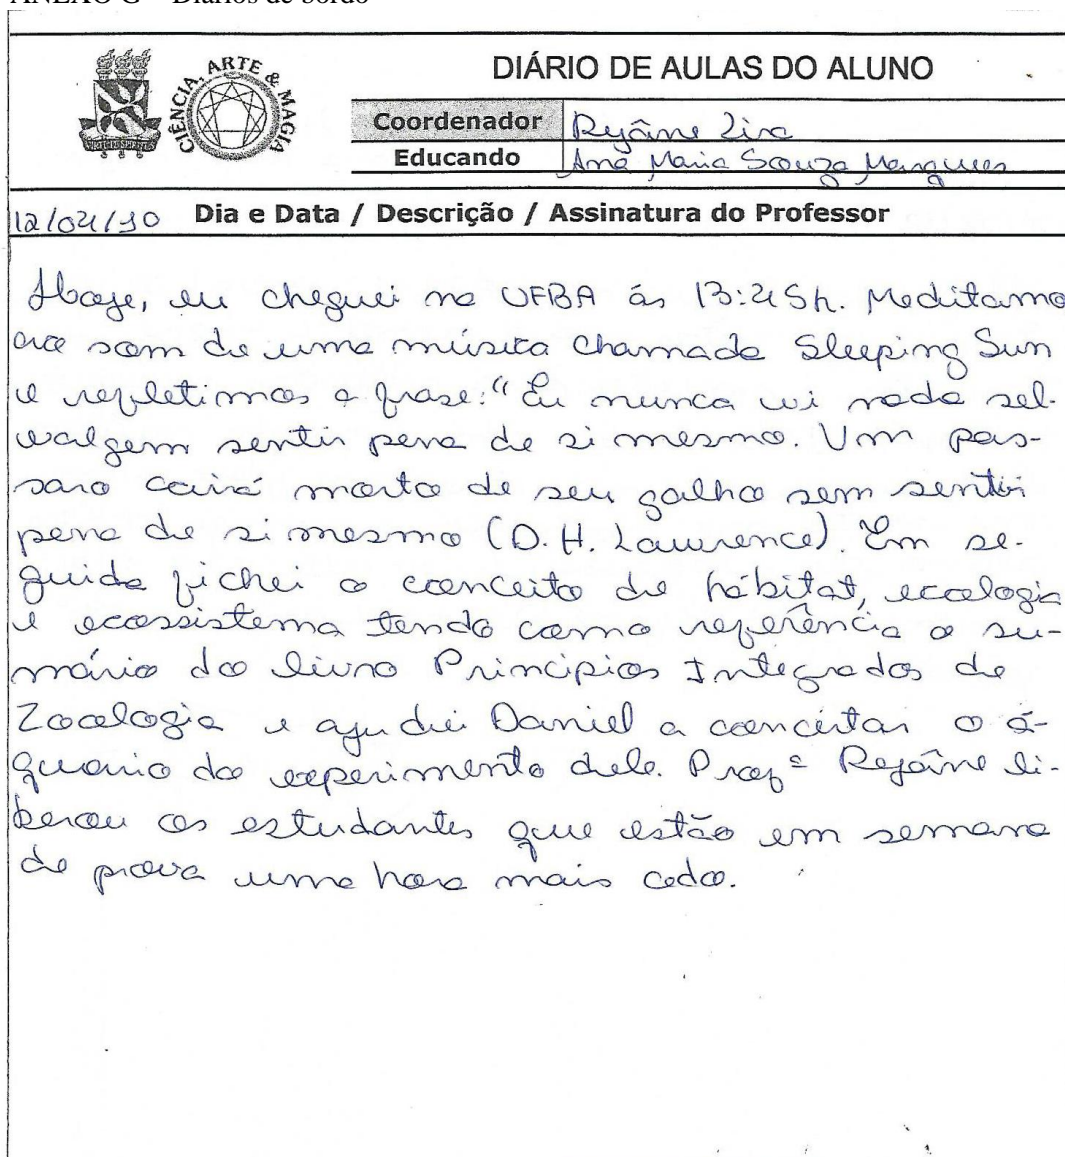 ANEXO G – Diários de bordo
CIÊNCIA, ARTE & MAGIA
VIRTUTE SPIRITUS
DIÁRIO DE AULAS DO ALUNO
Coordenador Rejâne Lira
Educando Ana Maria Souza Marques
12/04/10 Dia e Data / Descrição / Assinatura do Professor
Hoje, eu cheguei na UFBA ás 13:45h. Meditamo
ao som de uma música chamada Sleeping Sun
e refletimos a frase: “Eu nunca vi nada sel-
valgem sentir pena de si mesmo. Um pás-
saro cairá morto de seu galho sem sentir
pena de si mesmo (D. H. Lawrence). Em se-
guida fichei o conceito de hábitat, ecologia
e ecossistema tendo como referência o su-
mário do livro Princípios Integrados de
Zoologia e ajudei Daniel a concertar o á-
quario do experimento dele. Profª Rejâne li-
berou os estudantes que estão em semana
de prova uma hora mais cedo.